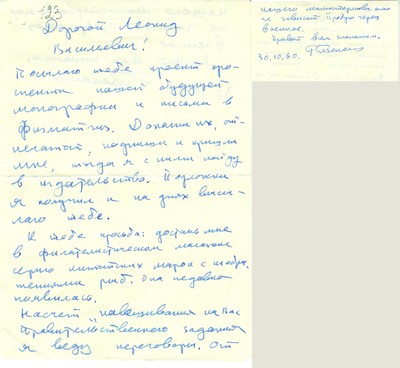 23
Дорогой Леонид
Васильевич!
Посылаю тебе проект про-
спекта нашей будущей
монографии и письма в
Физматгиз. Допиши их, от-
печатай, подпиши и пришли
мне, тогда я с ними пойду
в издательство.
я получил и на днях высы-
лаю тебе.
К тебе просьба: достань мне
в филателистическом магазине
серию китайских марок с изобра-
жениями рыб. Она недавно
появилась.
Насчет "навешивания на Вас
правительственного задания
я веду переговоры. От
нашего министерства оно
не зависит. Пробую через
военное.
Привет всем
30.10.60.